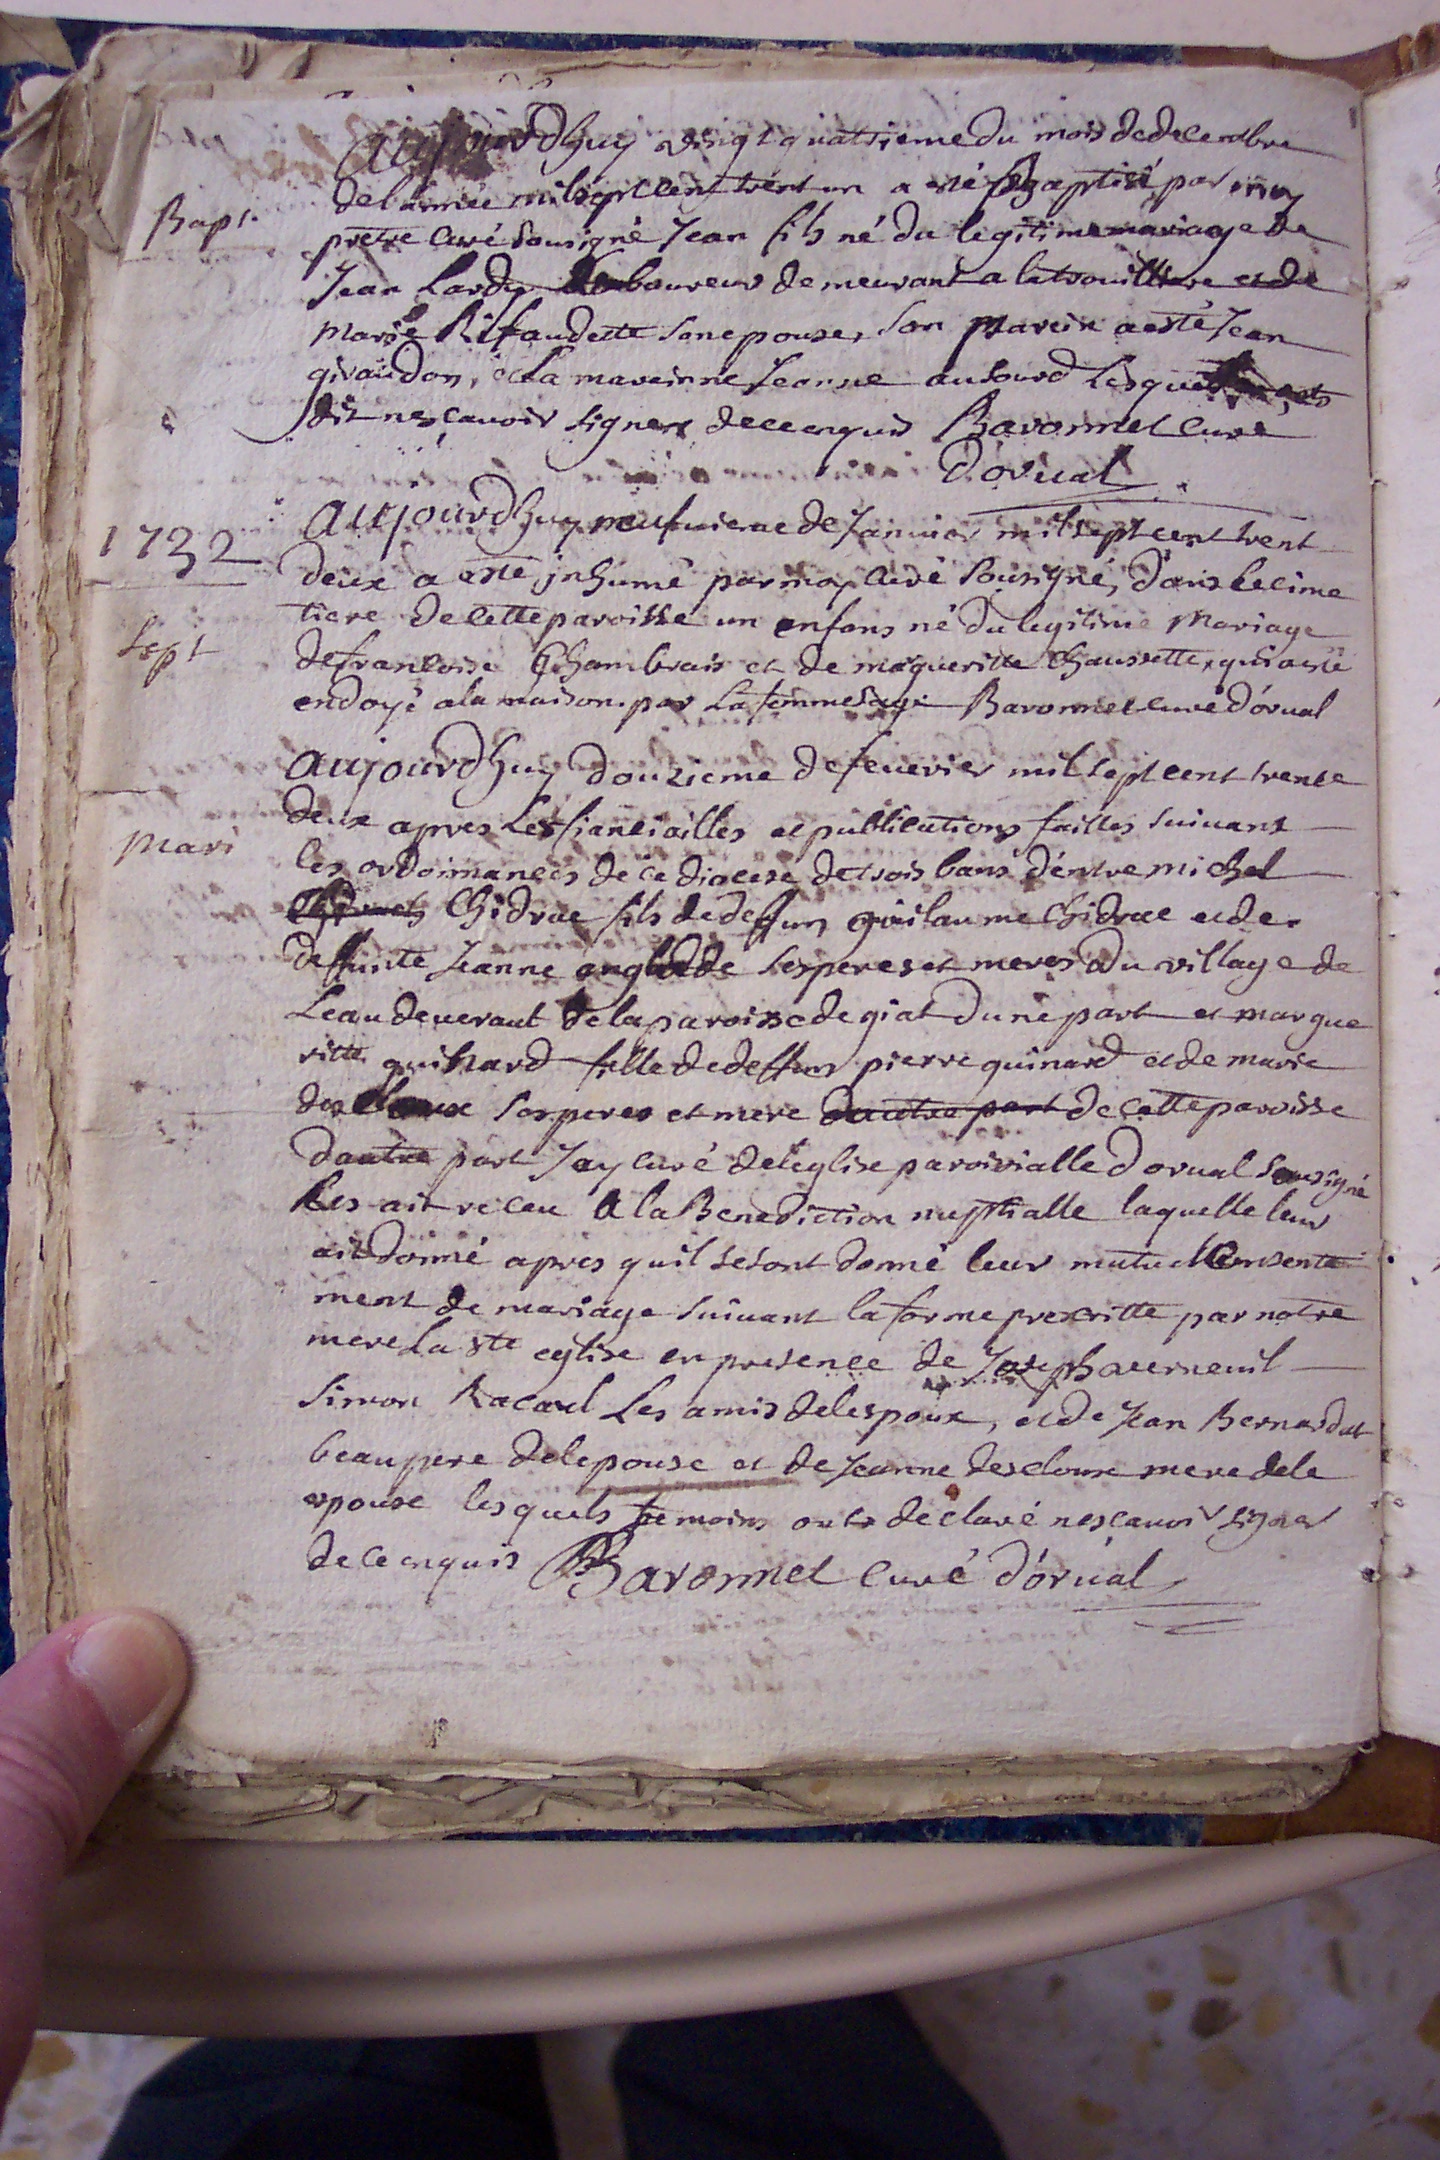 aujourdhuy vingt quatrieme du mois de decembre
Bapt.
de lannée mil sept cent trent un a esté Baptisé par moy
pretre curé sousigné Jean fils né du legitime mariage de
Jean Lardy laboureur demeurant a la trouilliere et de
marie Rifaudette son epouse, son parein a esté Jean
giraudon, et la mareinne Jeanne ausourd lesquels ont
dit ne scavoir signer de ce enquis Baronnet curé
d'orval
1732
aujourdhuy neufuieme de Januier mil sept cent trent
deux a esté inhumé par moy curé sousigné, dans le cime
Sept
tiere de cette paroisse un enfans né du legitime Mariage
de francoise Chambrais et de margueritte Chaussette, qui a esté
endoyé a la maison par la femme sage Baronnet curé d'orual
aujourdhuy douzieme de feuerier mil sept cent trente
Mari
deux apres les fianciailles et publications faittes suiuant
les ordoinnances de ce diocese de trois bans d'entre michel
Chidrac fils de deffun guilaume Chidrac et de
deffunte Jeanne anglade ses peres et meres du village de
Leaudeueraut de la paroisse de giat dune part et margue
ritte guinard fille de deffun pierre guinard et de marie
des cloux ses peres et mere dautre part de cette paroisse
dautre part Jay curé de leglise paroivialle dorual sousigné
les ait receu a la Benediction nuptialle laquelle leur
ait donné apres quil se sont donné leur mutuel Consente
ment de mariage suiuant la forme prescritte par notre
mere la ste eglise en presence de Joseph auerneuil
Simon Racard les amis de lespoux, et de Jean Bernardat
beaupere de lepouse et de Jeanne descloux mere de le
epouse lesquels temoins onts declaré ne scauoir signer
de ce enquis Baronnet curé d'órual